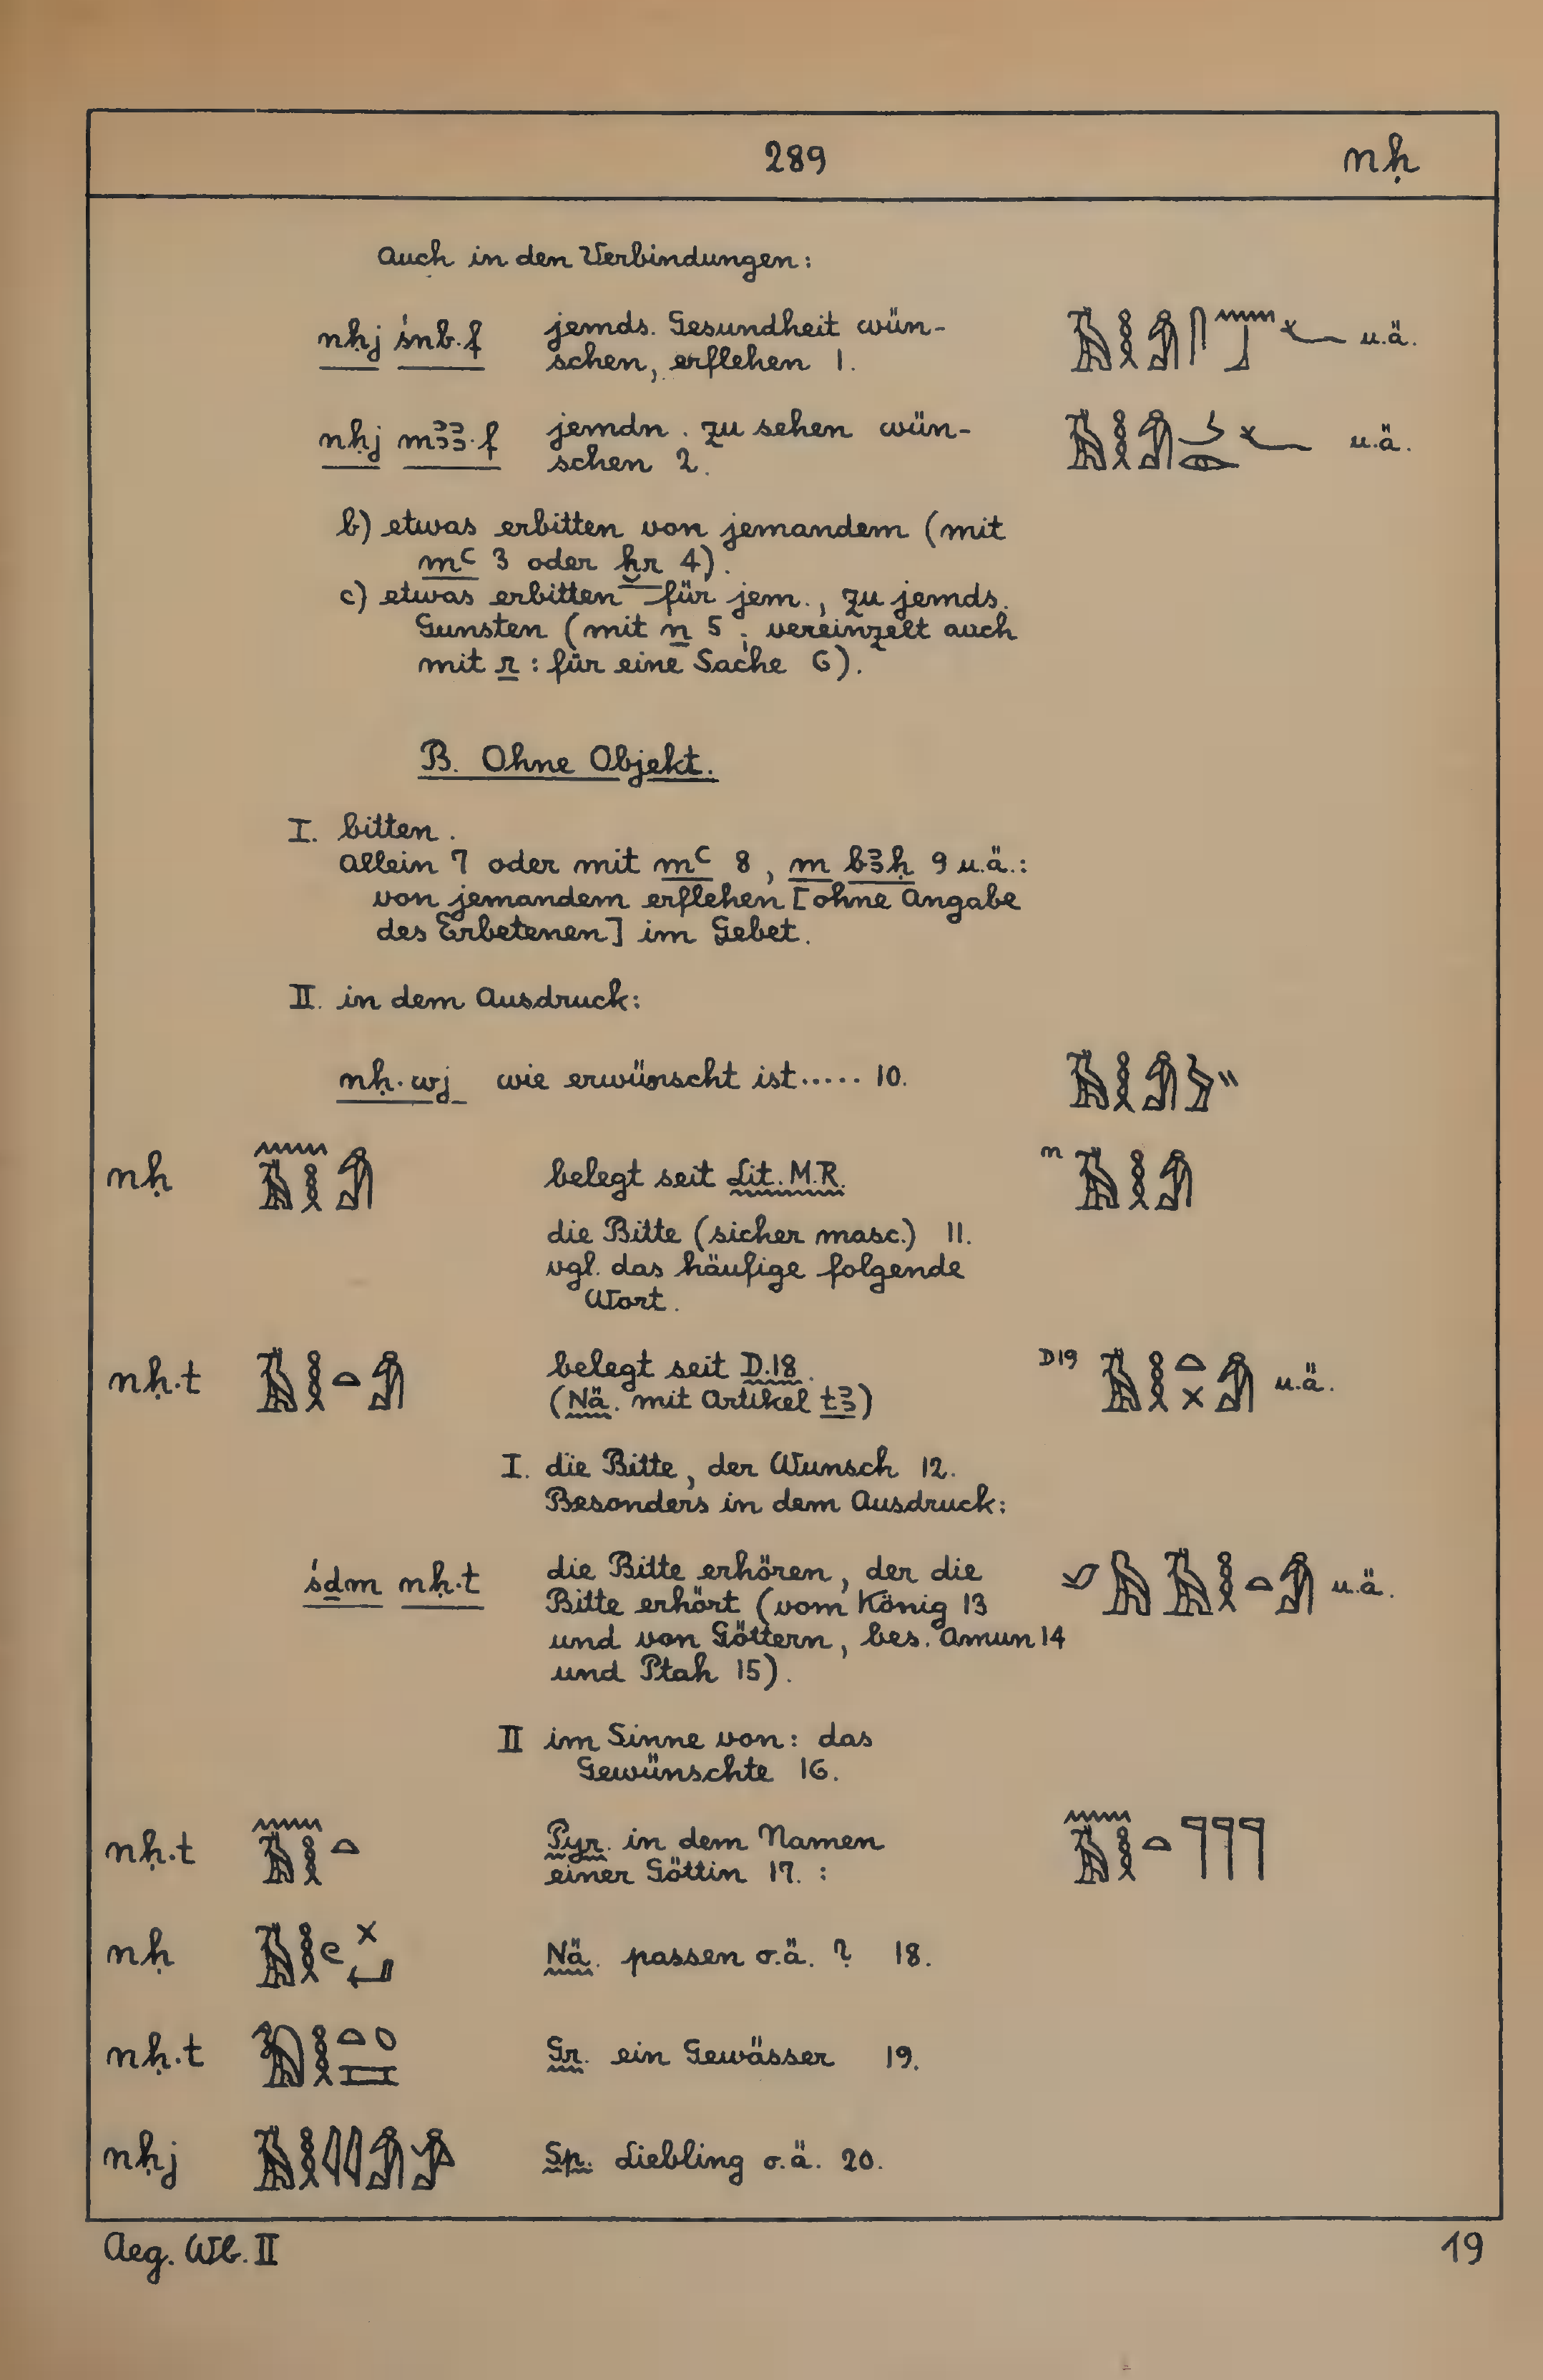 289 nḥ
Auch in den Verbindungen:
nḥj śnb.f jemds. Gesundheit wün-
schen, erflehen 1. u.ä.
nḥj mꜣꜣ.f jemdn. zu sehen wün-
schen 2. u.ä.
b) etwas erbitten von jemandem (mit
mꜥ 3 oder ḫr 4).
c) etwas erbitten für jem., zu jemds.
Gunsten (mit n 5; vereinzelt auch
mit r: für eine Sache 6).
B. Ohne Objekt.
I. bitten.
Allein 7 oder mit mꜥ 8, m bꜣḥ 9 u.ä.:
von jemandem erflehen [ohne Angabe
des Erbetenen] im Gebet.
II. in dem Ausdruck:
nḥ.wj wie erwünscht ist..... 10.
nḥ belegt seit Lit. M.R. n
die Bitte (sicher masc.) 11.
vgl. das häufige folgende
Wort.
nḥ.t belegt seit D.18. D19 u.ä.
(Nä. mit Artikel tꜣ)
I. die Bitte, der Wunsch 12.
Besonders in dem Ausdruck:
śḏm nḥ.t die Bitte erhören, der die u.ä.
Bitte erhört (vom König 13
und von Göttern, bes. Amun 14
und Ptah 15).
II im Sinne von: das
Gewünschte 16.
nḥ.t Pyr. in dem Namen
einer Göttin 17. :
nḥ Nä. passen o.ä. ? 18.
nḥ.t Gr. ein Gewässer 19.
nḥj Sp. Liebling o.ä. 20.
Aeg. Wb. II 19